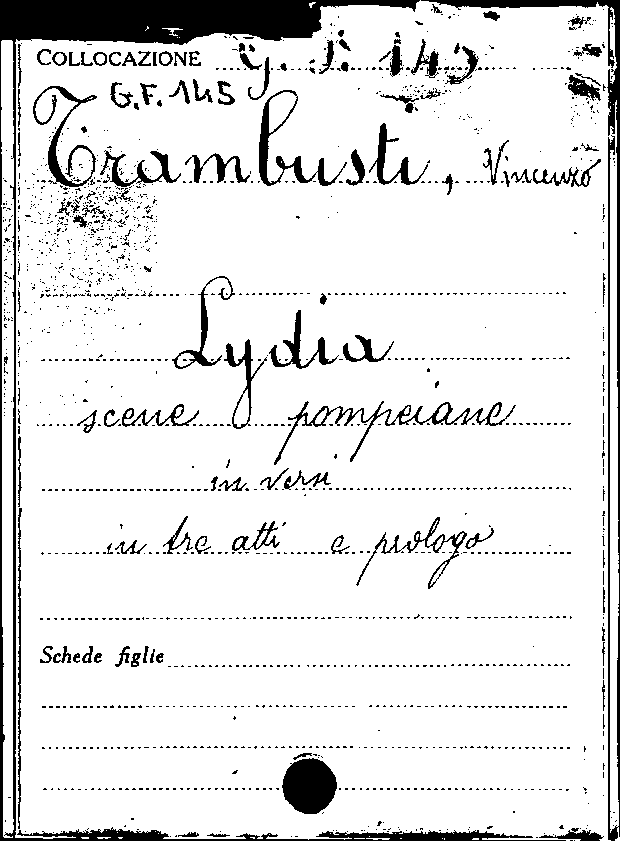 COLLOCAZIONE G. F. 145
G.F. 145
Trambusti, Vincenzo
Lydia
scene pompeiane
in versi
in tre atti e prologo
Schede figlie